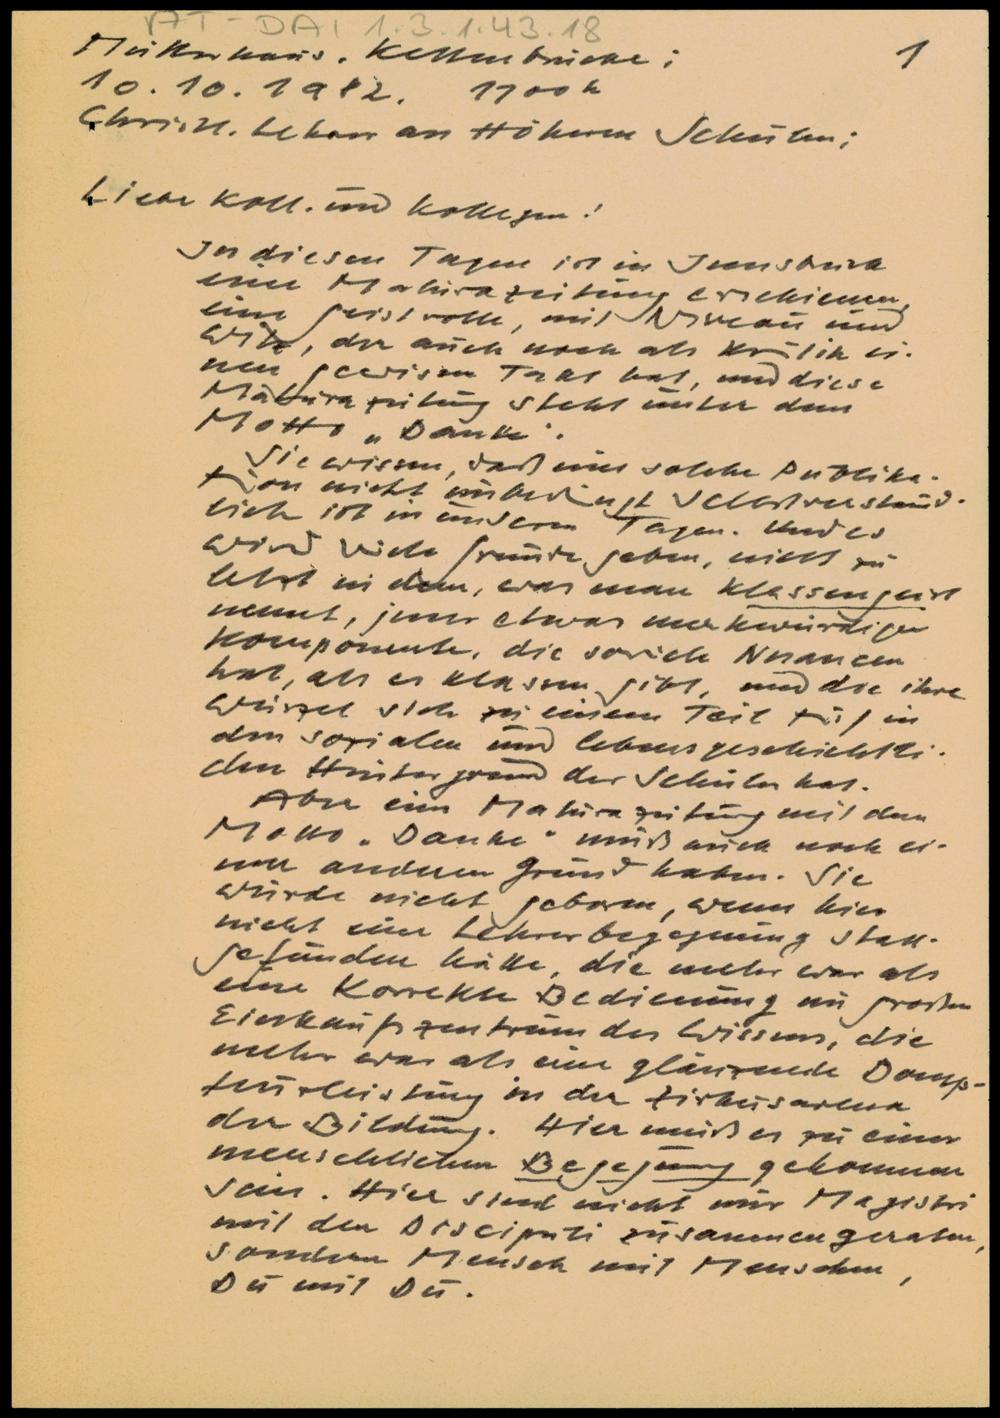 AT-DAI 1.3.1.43.18
1
Mutterhaus. Kettenbrücke;
10.10.1982. 1700h
Christl. Lehrer an Höheren Schulen;
Liebe Koll. und Kollegen!
In diesen Tagen ist in Innsbruck
eine Maturazeitung erschienen,
eine geistvolle, mit Niveau und
Witz, der auch noch als Kritik ei-
nen gewissen Takt hat, und diese
Maturazeitung steht unter dem
Motto „Danke".
Sie wissen, daß eine solche Publika-
tion nicht unbedingt selbstverständ-
lich ist in unseren Tagen. Und es
wird viele Gründe geben, nicht zu
letzt in dem, was man Klassengeist
nennt, jener etwas merkwürdigen
Komponente, die soviele Nuancen
hat, als es Klassen gibt, und die ihre
Wurzel sich zu einem Teil tief in
den sozialen und lebensgeschichtli-
chen Hintergrund der Schüler hat.
Aber eine Maturazeitung mit dem
Motto „Danke" muß auch noch ei-
nen anderen Grund haben. Sie
würde nicht geboren, wenn hier
nicht eine Lehrerbegegnung statt-
gefunden hätte, die mehr war als
eine korrekte Bedienung im großen
Einkaufszentrum des Wissens, die
mehr war als eine glänzende Domp-
teurleistung in der Zirkusarena
der Bildung. Hier muß es zu einer
menschlichen Begegnung gekommen
sein. Hier sind nicht nur Magistri
mit den Discipuli zusammengeraten,
sondern Mensch mit Menschen,
Du mit Du.